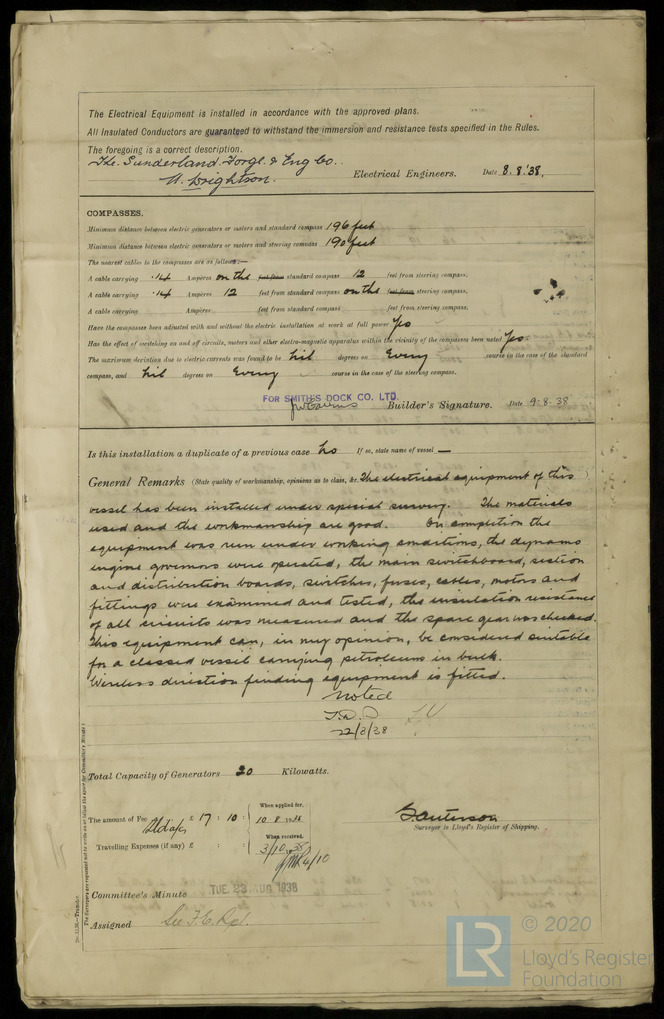 The Electrical Equipment is installed in accordance with the approved plans.
All Insulated Conductors are guaranteed to withstand the immersion and resistance tests specified in the Rules.
The foregoing is a correct description.
The Sunderland Forge & Eng Co.
Wrightson. Electrical Engineers. Date 8.8.'38.
COMPASSES.
Minimum distance between electric generators or motors and standard compass 196 feet
Minimum distance between electric generators or motors and steering compass 190 feet
The nearest cables to the compasses are as follows:—
A cable carrying .14 Ampères on the feet from standard compass 12 feet from steering compass.
A cable carrying .14 Ampères 12 feet from standard compass on the feet from steering compass.
A cable carrying Ampères feet from standard compass feet from steering compass.
Have the compasses been adjusted with and without the electric installation at work at full power Yes
Has the effect of switching on and off circuits, motors and other electro-magnetic apparatus within the vicinity of the compasses been noted Yes.
The maximum deviation due to electric currents was found to be Nil degrees on Every course in the case of the standard
compass, and Nil degrees on Every course in the case of the steering compass.
FOR SMITHS DOCK CO. LTD.
Builder's Signature. Date 9.8.38
Is this installation a duplicate of a previous case No If so, state name of vessel —
General Remarks (State quality of workmanship, opinions as to class, &c. The electrical equipment of this
vessel has been installed under special survey. The materials
used and the workmanship are good. On completion the
equipment was run under working conditions, the dynamo
engine governors were operated, the main switchboard, section
and distribution boards, switches, fuses, cables, motors and
fittings were examined and tested, the insulation resistance
of all circuits was measured and the spare gear was checked.
This equipment can, in my opinion, be considered suitable
for a classed vessel carrying petroleum in bulk.
Wireless direction finding equipment is fitted.
Noted
22/8/38
Total Capacity of Generators 20 Kilowatts.
The amount of Fee £ 17 : 10 :
When applied for,
10 8 1938
Travelling Expenses (if any) £ : :
When received,
3/10 1938
4/10
Surveyor to Lloyd's Register of Shipping.
Committee's Minute TUE 23 AUG 1938
Assigned See F.E. Rpt.
2m.11.36.—Transfer.
The Surveyors are requested not to write on or below the space for Committee's Minute.
LR
© 2020
Lloyd's Register
Foundation